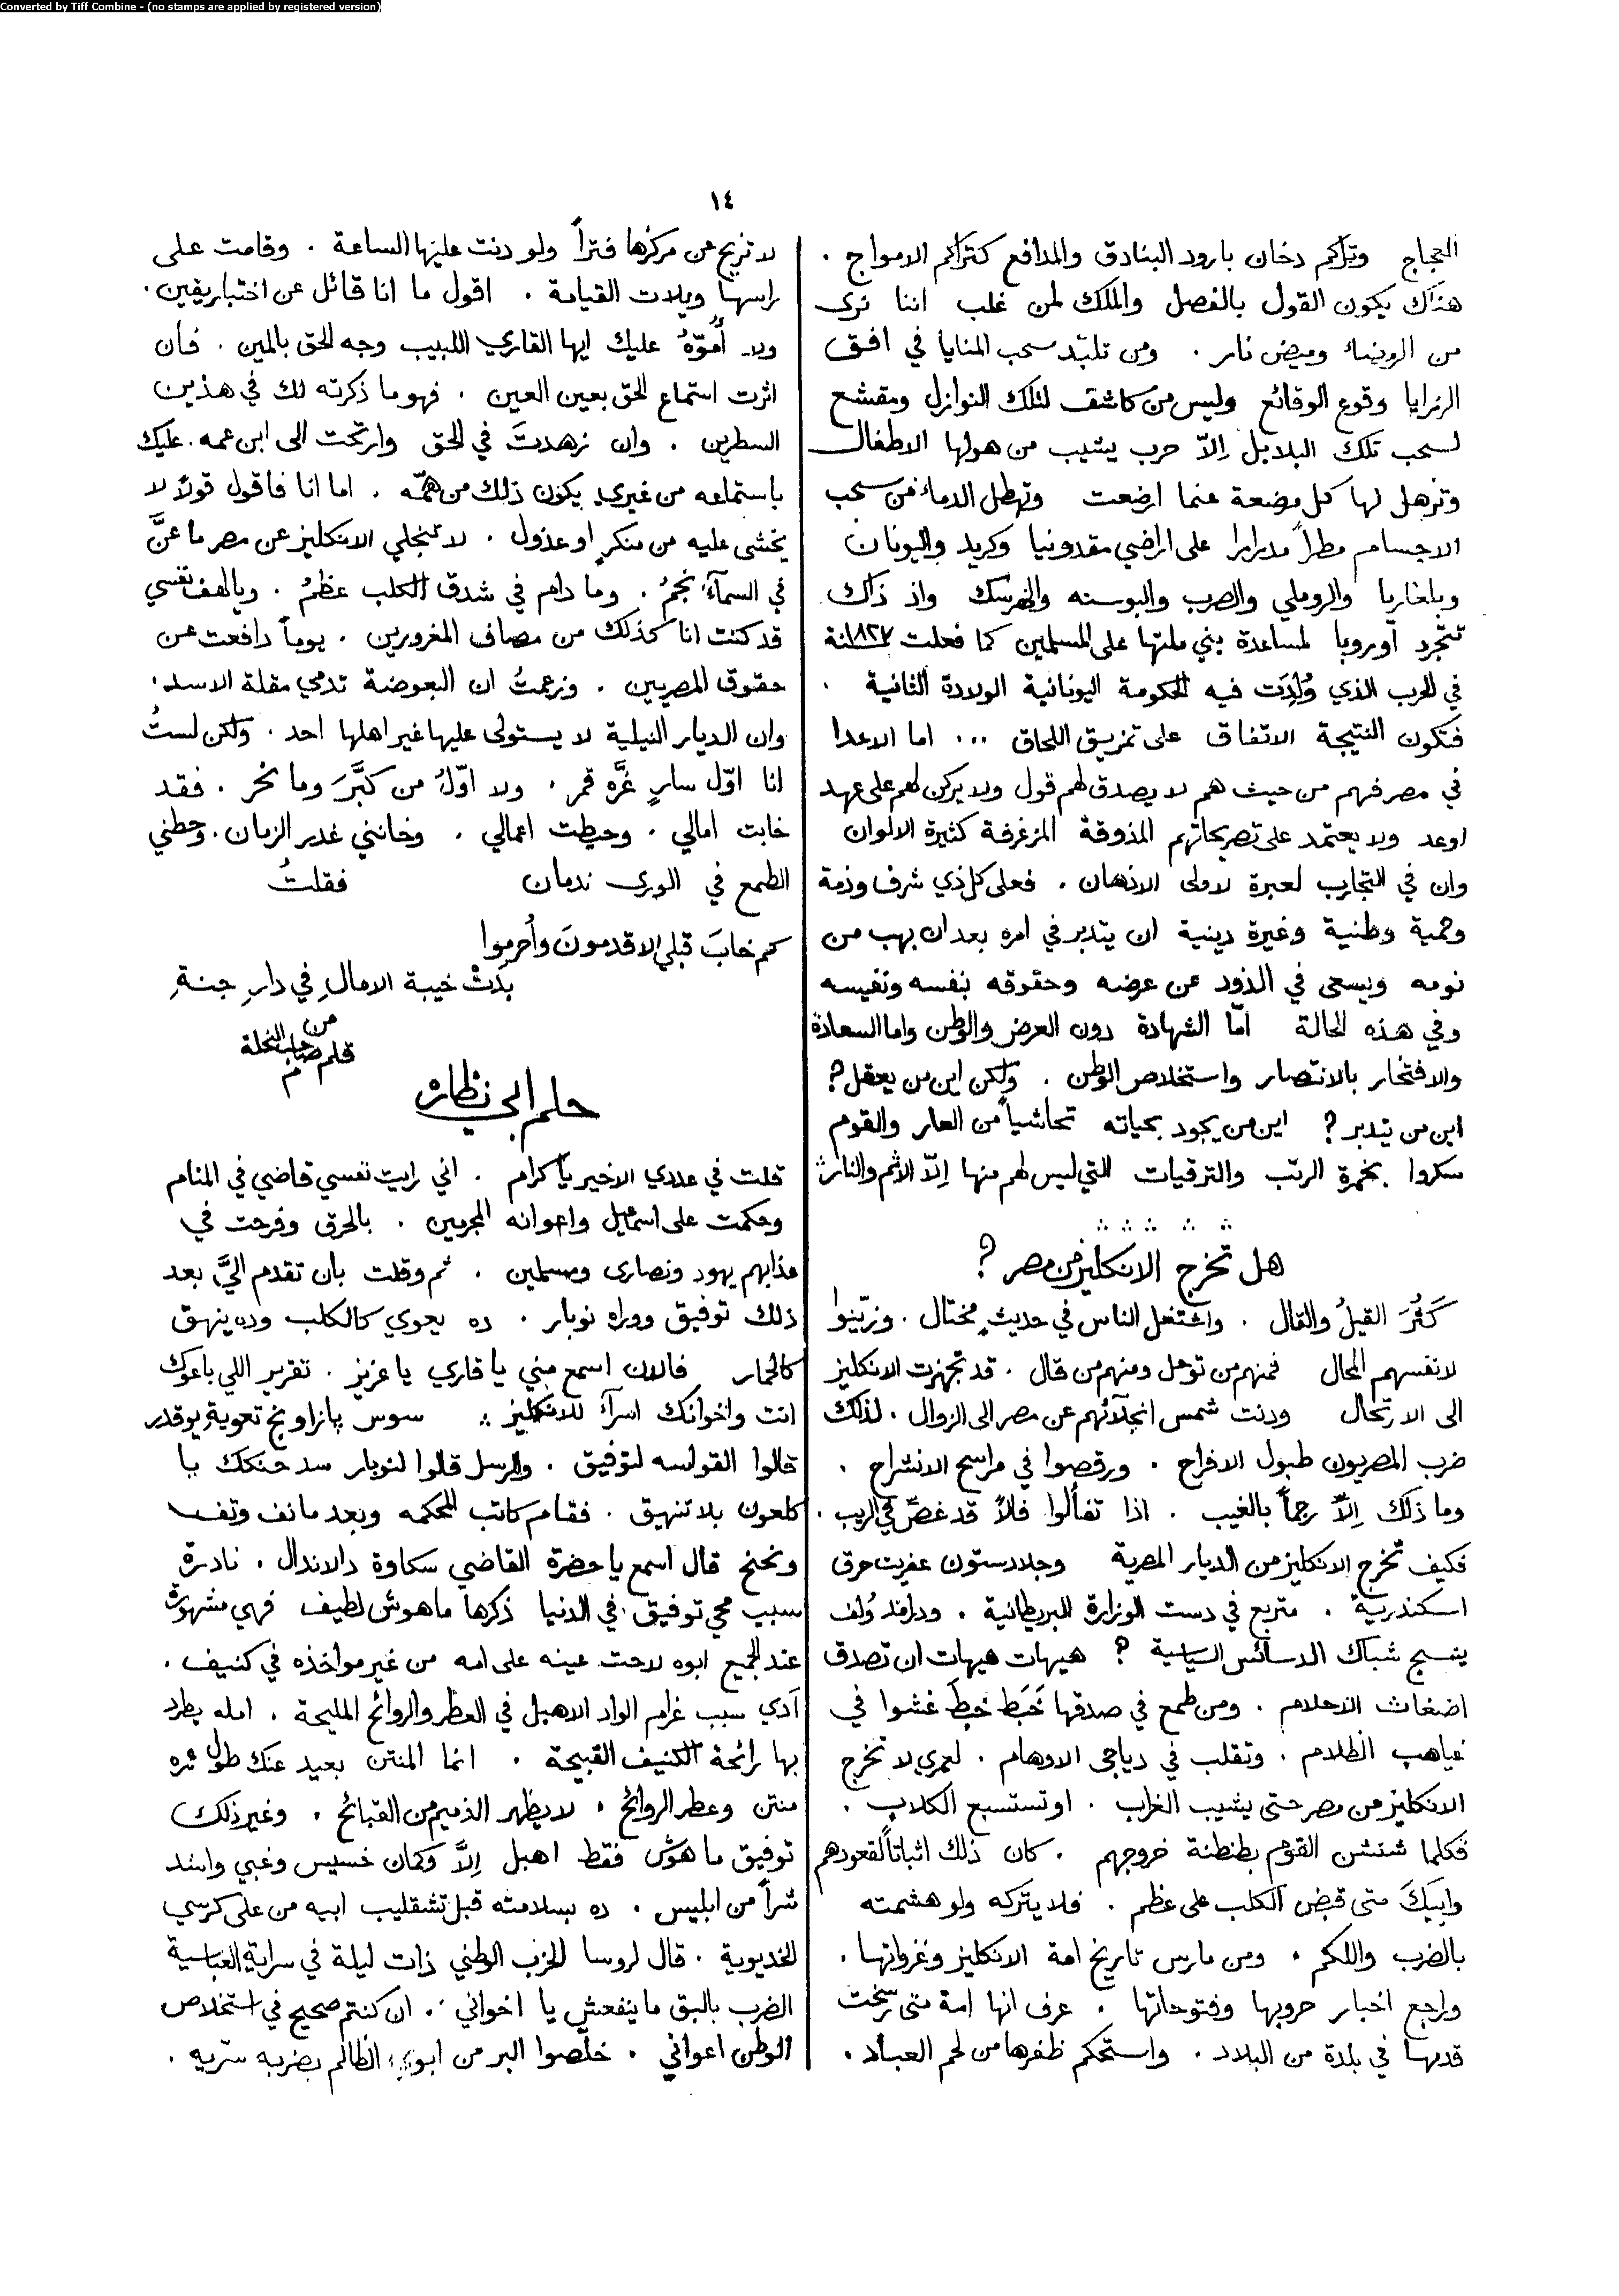 Converted by Tiff Combine - (no stamps are applied by registered version)
١٤
العجاج وتراكم دخان بارود البنادق والمدافع كتراكم الامواج .
هناك يكون القول بالفصل والملك لمن غلب اننا نرى
من الوميض نار . ومن تلبّد سحب المنايا في افق
الرزايا وقوع الوقائع وليس من كاشف لتلك النوازل ومقشع
لسحب تلك البلابل إلاّ حرب يشيب من هولها الاطفال
وتذهل لها كل مضعة عنما ارضعت وتهطل الدماء من سحب
الاجسام مطراً مدرارا على اراضي مقدونيا وكريد واليونان
وبلغاريا والروملي والصرب والبوسنه والهرسك واذ ذاك
تتجرد آوروبا لمساعدة بني ملتها على المسلمين كما فعلت ١٨٢٧ـنة
في الحرب الذي وُلِدَت فيه الحكومة اليونانية الولادة الثانية .
فتكون النتيجة الاتفاق على تمزيق اللحاق ... اما الاعدا
في مصر فهم من حيث هم لا يصدق لهم قول ولا يركن لهم على عهد
اوعد ولا يعتمد على تصريحاتهم المذوقة المزغرفة كثيرة الالوان
وان في التجارب لعبرة لاولى الاذهان . فعلى كل ذي شرف وذمة
وحمية وطنية وغيرة دينية ان يتدبر في امره بعد ان يهب من
نومه ويسعى في الذود عن عرضه وحقوقه بنفسه ونفيسه
وفي هذه الحالة امّا الشهادة دون العرض والوطن واما السعادة
والافتخار بالانتصار واستخلاص الوطن . ولكن اين من يعقل ؟
اين من يتدبر ؟ اين من يجود بحياته تحاشياً من العار والقوم
سكروا بخمرة الرتب والترقيات التي ليس لهم منها إلاّ الاثم والنارث
هل تخرج الانكليز من مصر ؟
كَثُرَ القيلُ والقال . واشتغل الناس في حديثٍ مختال . وزيّنوا
لانفسهم المحال فمنهم من توصل ومنهم من قال . قد تجهزت الانكليز
الى الارتحال ودنت شمس انجلآئهم عن مصر الى الزوال . لذلك
ضرب المصريون طبول الافراح . ورقصوا في مراسح الانشراح .
وما ذلك إلاّ رجماً بالغيب . اذا تفألوا فلاً قد غصّ في الريب .
فكيف تخرج الانكليز من الديار المصرية وجلادستون عفريت حرق
اسكندرية . متربع في دست الوزارة البريطانية . ودرامند وُلف
ينسج شباك الدسائس السياسية ؟ هيهات هيهات ان تصدق
اضغاث الاحلام . ومن طمع في صدقها خَبَط خبطَ عشوا في
غياهب الظلام . وتقلب في دياجى الاوهام . لعمري لا تخرج
الانكليز من مصر حتى يشيب الغراب . او تستسبع الكلاب .
فكلما شنشن القوم بطنطنة خروجهم . كان ذلك اثباتاً لقعودهم
وابيكَ متى قبض الكلب على عظم . فلا يتركه ولو هشمته
بالضرب واللكم . ومن مارس تاريخ امة الانكليز وغزواتها .
وراجع اخبار حروبها وفتوحاتها . عرف انها امة متى رسخت
قدمها في بلدة من البلاد . واستحكم ظفرها من لحم العباد .
لا تزيح من مركزها فتراً ولو دنت عليها الساعة . وقامت على
راسها ويلات القيامة . اقول ما انا قائل عن اختبار يقين .
ولا أُموّهُ عليك ايها القاري اللبيب وجه الحق بالمين . فان
اثرت استماع الحق بعين العين . فهو ما ذكرته لك في هذين
السطرين . وان زهدتَ في الحق وارتحت الى ابن عمه . عليك
باستماعه من غيري يكون ذلك من همّه . اما انا فاقول قولاً لا
يخشى عليه من منكرٍ او عذول . لا تنجلي الانكليز عن مصر ما عنَّ
في السمآء نجمُ . وما دام في شدق الكلب عظمُ . ويالهف نفسي
قد كنت انا كذلك من مصاف المغرورين . يوماً دافعت عن
حقوق المصريين . وزعمتُ ان البعوضة تدمي مقلة الاسد .
وان الديار النيلية لا يستولى عليها غير اهلها احد . ولكن لستُ
انا اوّل سارٍ غرَّه قمر . ولا اوّلُ من كبَّرَ وما نحر . فقد
خابت امالي . وحبطت اعمالي . وخانني غدير الزمان . وحطني
الطمع في الورى ندمان فقلتُ
كم خابَ قبلي الاقدمونَ وأُحرِموا
بدتْ خيبة الامالِ في دارِ جنةِ
من
قلم صاحب النحلة
حلم ابي نظاره
قلت في عددي الاخير يا كرام . اني رايت نفسي قاضي في المنام
وحكمت على اسماعيل واعوانه المجرمين . بالحرق وفرحت في
عذابهم يهود ونصارى ومسلمين . ثم وقلت بان تقدم اليَّ بعد
ذلك توفيق ووراه نوبار . ده يعوي كالكلب وده ينهق
كالحمار فالان اسمع مني يا قاري يا عزيز . تقرير اللي باعوك
انت واخوانك اسرآ للانكليز سوس پازاونج تعويق يوقدر
قالوا القولسه لتوفيق . والرسل قالوا لنوبار سد حنكك يا
كلعون بلا تنهيق . فقام كاتب المحكمه وبعد ما نف وتف
ونحنح قال اسمع يا حضرة القاضي سكاوة دالاندال . نادرة
سبب مجي توفيق في الدنيا ذكرها ماهوش لطيف فهي مشهورة
عند الجميع ابوه لاحت عينه على امه من غير مواخذه في كنيف .
آدي سبب غرام الواد الاهبل في العطر والروائح المليحة . امله يطرد
بها رائحة الكنيف القبيحة . انما المنتن بعيد عنك طول عمره
منتن وعطر الروائح . لا يطهر الذميم من القبائح . وغير ذلك
توفيق ماهوش فقط اهبل إلاَّ وكمان خسيس وغبي واشد
شراً من ابليس . ده بسلامته قبل تشقليب ابيه من على كرسي
الخديوية . قال لروسا الحزب الوطني ذات ليلة في سراية العباسية
الضرب بالبق ما ينفعش يا اخواني . ان كنتم صحيح في استخلاص
الوطن اعواني . خلّصوا البر من ابوي الظالم بضربه سرّيه .